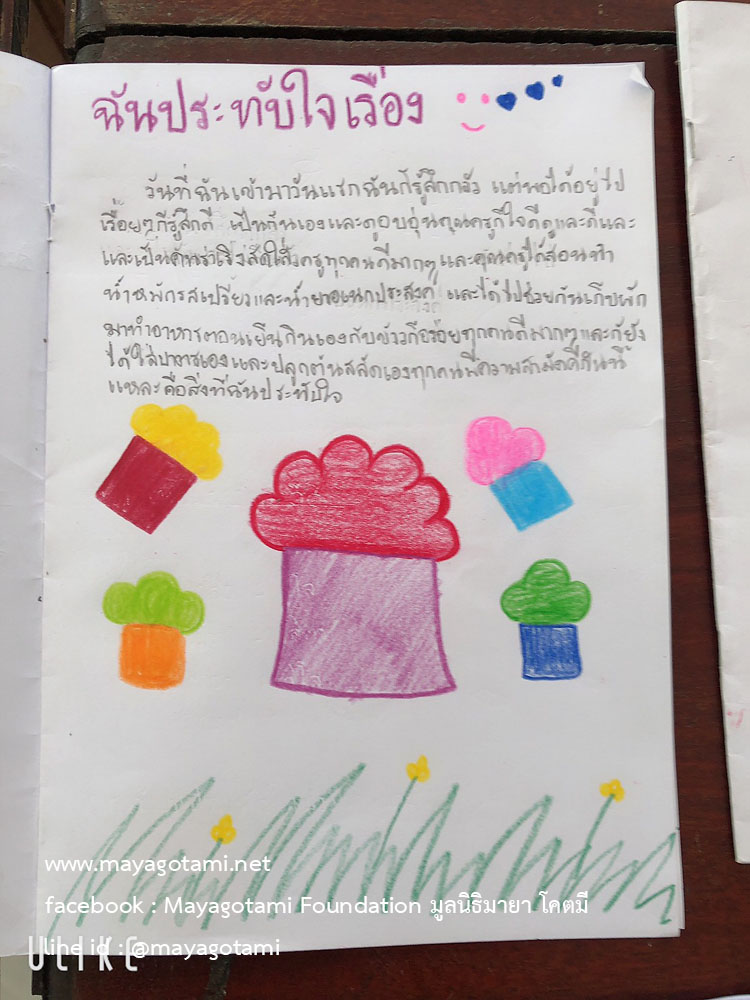 ฉันประทับใจเรื่อง
วันที่ฉันเข้ามาวันแรกฉันก็รู้สึกกลัว แต่พอได้อยู่ไป
เรื่อยๆก็รู้สึกดี เป็นกันเองและดูอบอุ่นคุณครูก็ใจดีดูแลดีและ
และเป็นคนร่าเริงสดใสครูทุกคนดีมากๆ และคุณครูได้สอนทำ
น้ำหมักรสเปรี้ยวและน้ำยาอเนกประสงค์ และได้ไปช่วยกันเก็บผัก
มาทำอาหารตอนเย็นกินเองกับข้าวก็อร่อยทุกคนดีมากๆและก็ยัง
ได้ใส่บาตรเองและปลูกต้นสลัดเองทุกคนมีความสามัคคีกันนี้
แหละคือสิ่งที่ฉันประทับใจ
www.mayagotami.net
facebook : Mayagotami Foundation มูลนิธิมายา โคตมี
line id : @mayagotami
ULIKE